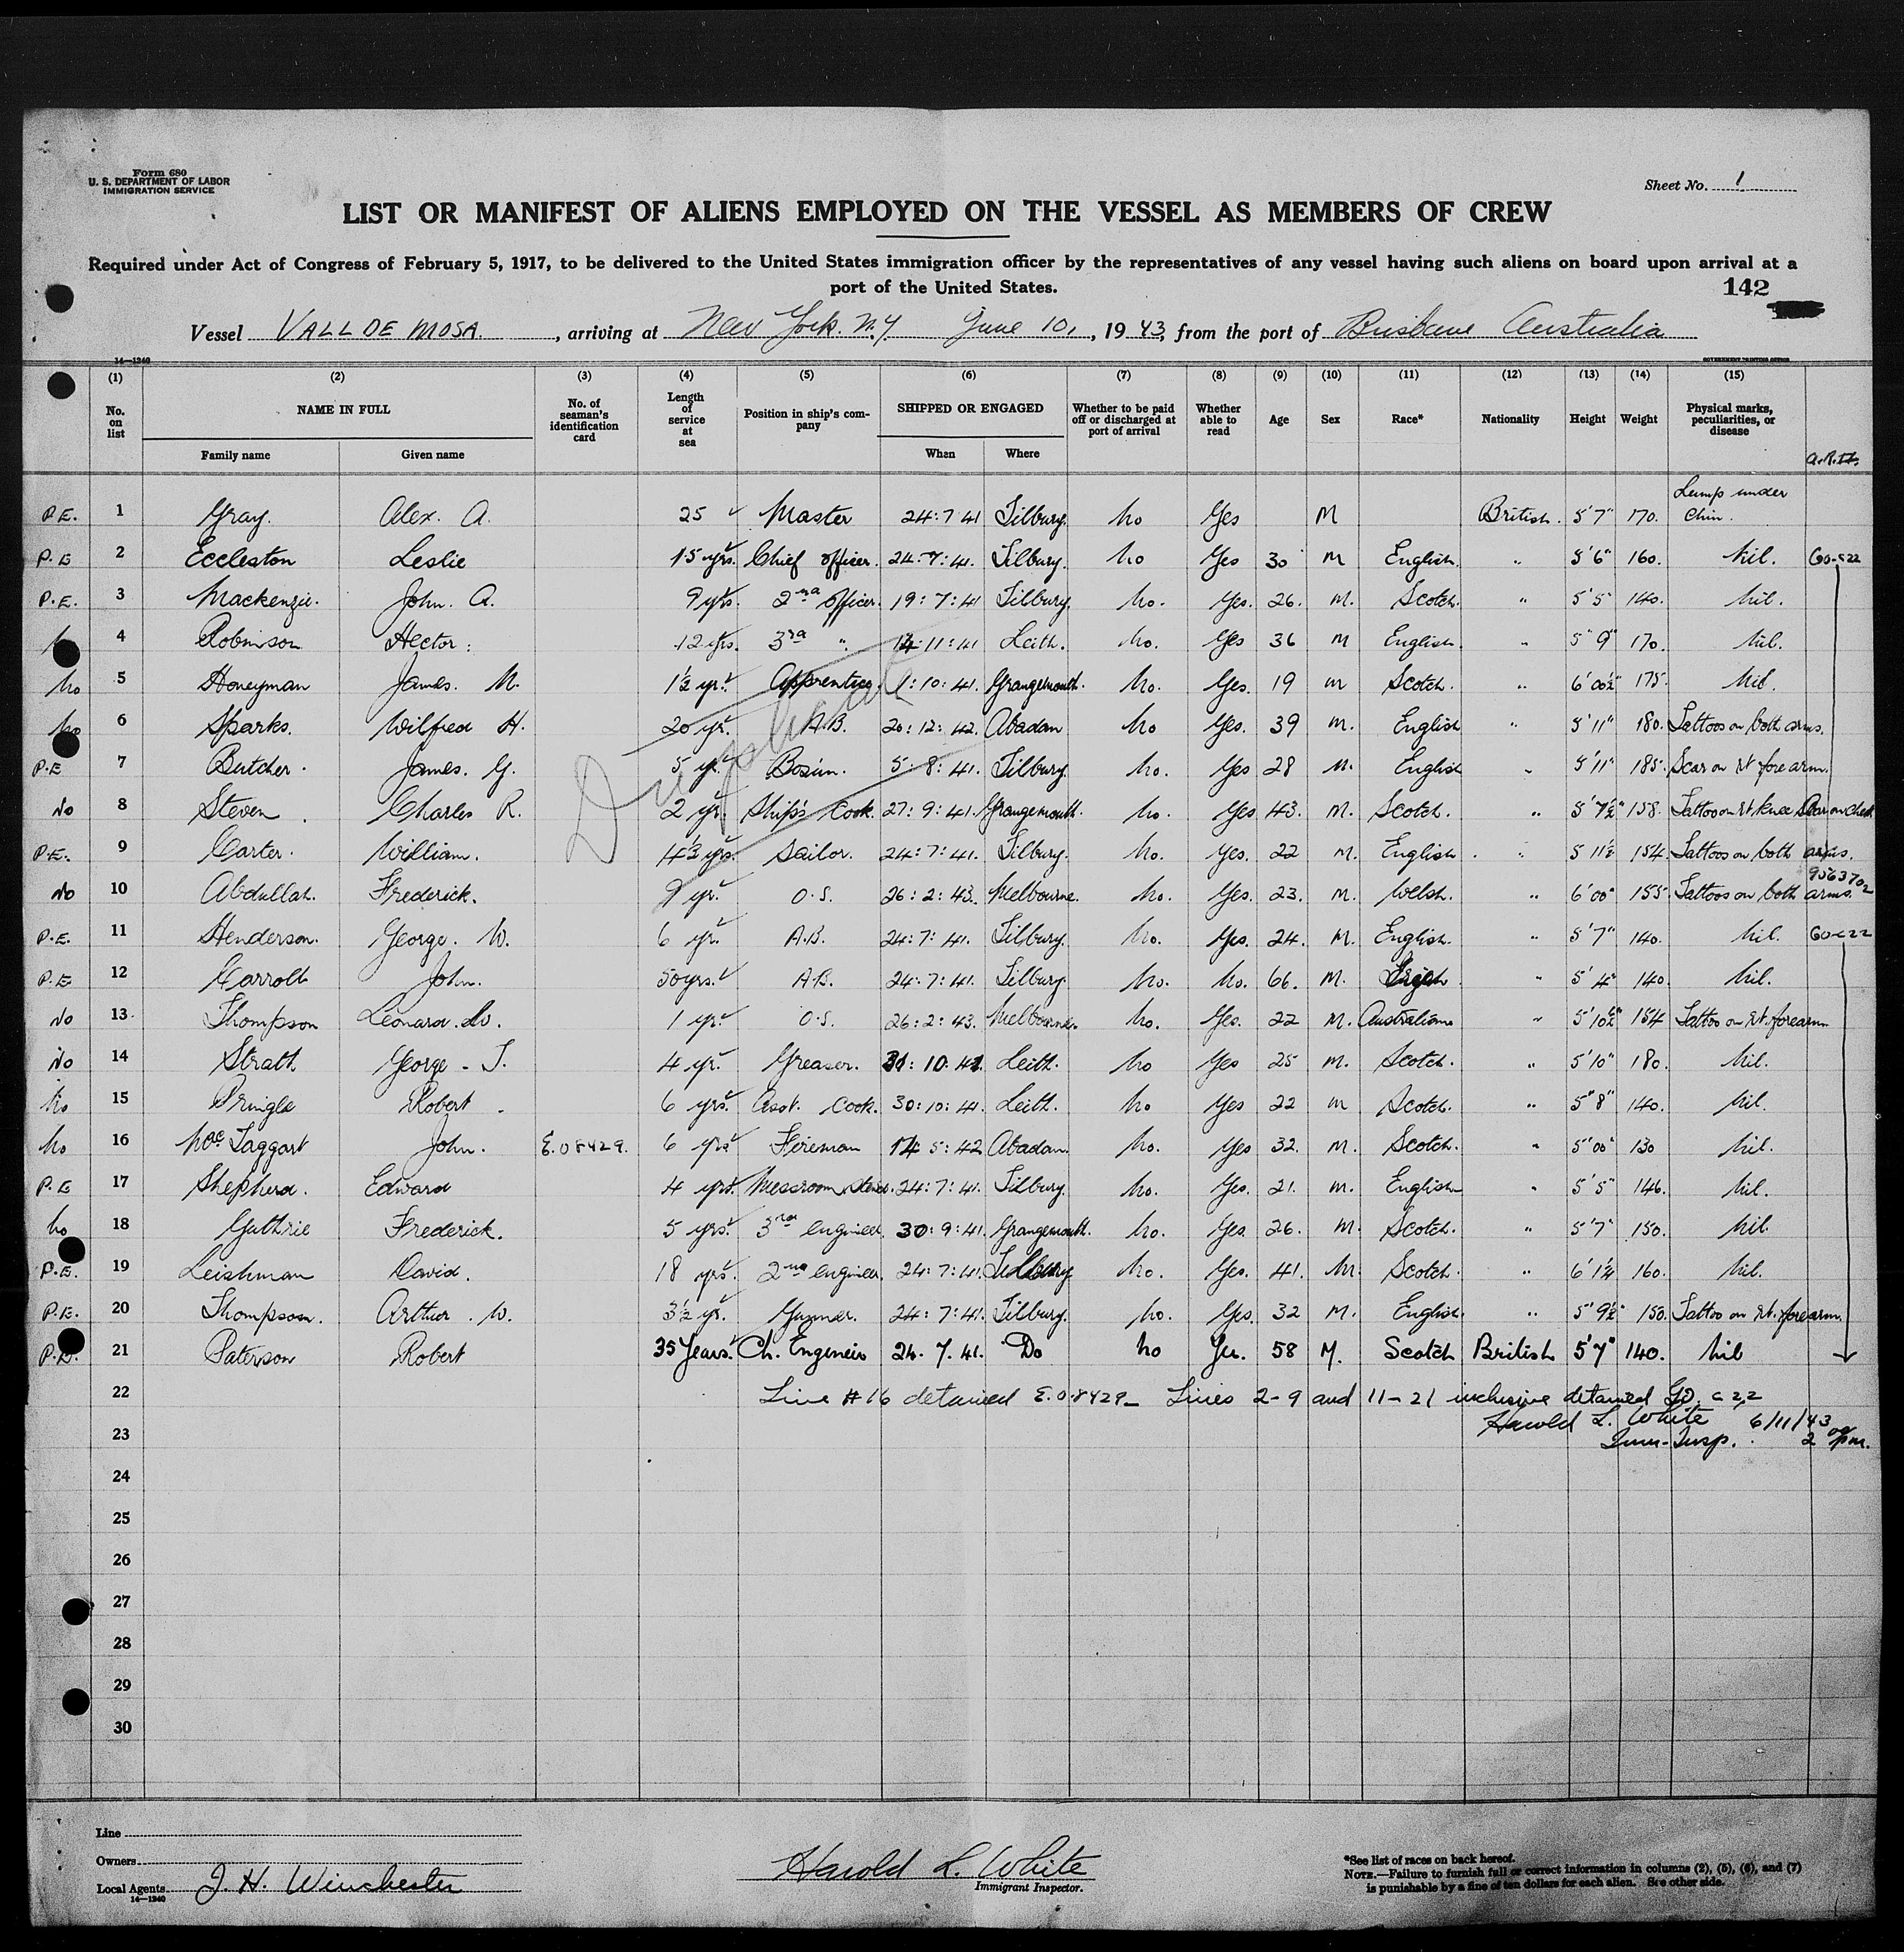 Form 680
U. S. DEPARTMENT OF LABOR
IMMIGRATION SERVICE
Sheet No. 1
LIST OR MANIFEST OF ALIENS EMPLOYED ON THE VESSEL AS MEMBERS OF CREW
Required under Act of Congress of February 5, 1917, to be delivered to the United States immigration officer by the representatives of any vessel having such aliens on board upon arrival at a
port of the United States.
142
Vessel VALL DE MOSA. , arriving at New York. N.Y. June 10, , 19 43, from the port of Brisbane Australia
14—1240 GOVERNMENT PRINTING OFFICE
(1) (2) (3) (4) (5) (6) (7) (8) (9) (10) (11) (12) (13) (14) (15)
No. on list NAME IN FULL No. of seaman's identification card Length of service at sea Position in ship's company SHIPPED OR ENGAGED Whether to be paid off or discharged at port of arrival Whether able to read Age Sex Race* Nationality Height Weight Physical marks, peculiarities, or disease
Family name Given name When Where
P.E. 1 Gray. Alex. A. 25 Master 24:7 41 Tilbury. No Yes M British. 5'7" 170. Lump under chin.
P.E 2 Eccleston Leslie 15 yrs. Chief officer. 24:7:41. Tilbury. No Yes 30 M English. " 5'6" 160. Nil. GO-C22
P.E. 3 Mackenzie. John. A. 9 yrs. 2nd officer. 19:7:41 Tilbury. No. Yes. 26. M. Scotch. " 5'5" 140. Nil.
4 Robinson Hector: 12 yrs. 3rd ". 14:11:41 Leith. No. Yes 36 M English. " 5'9" 170. Nil.
No 5 Honeyman James. M. 1½ yr. Apprentice 1:10:41. Grangemouth. No. Yes. 19 M Scotch. " 6'00½" 175. Nil.
No 6 Sparks. Wilfred H. 20 yr. A.B. 20:12:42. Abadan No Yes. 39 M. English " 5'11" 180. Tattoos on both arms.
P.E 7 Butcher. James. G. 5 yr. Bosun. 5:8:41. Tilbury. No. Yes 28 M. English " 5'11" 185. Scar on rt forearm.
No 8 Steven Charles R. 2 yr. Ship's Cook. 27:9:41. Grangemouth. No. Yes 43. M. Scotch. " 5'7½" 158. Tattoo on rt knee Scar on chest
P.E. 9 Carter. William. 4½ yrs. Sailor. 24:7:41. Tilbury. No. Yes. 22 M. English. " 5 11½ 154. Tattoos on both arms.
No 10 Abdullah. Frederick. 9 yr. O.S. 26:2:43. Melbourne. No. Yes. 23. M. Welsh. " 6'00" 155. Tattoos on both arms.
P.E. 11 Henderson. George. W. 6 yr. A.B. 24:7:41. Tilbury. No. Yes. 24. M. English. " 5'7" 140. Nil. GO-C22
P.E 12 Carroll John. 50 yrs. A.B. 24:7:41. Tilbury. No. No. 66. M. " 5'4" 140. Nil.
No 13. Thompson Leonard. W. 1 yr. O.S. 26:2:43. Melbourne. No. Yes. 22 M. Australian " 5'10½" 154 Tattoo on rt. forearm
No 14 Strath George - T. 4 yr. Greaser. 31:10:41. Leith. No Yes 25 M. Scotch. " 5'10" 180. Nil.
No 15 Pringle Robert 6 yrs. Asst. Cook. 30:10:41. Leith. No Yes 22 M Scotch. " 5"8" 140. Nil.
No 16 MacTaggart John. E.08429. 6 yrs Fireman 14 5:42 Abadan No. Yes 32. M. Scotch. " 5'00" 130 Nil.
P.E 17 Shepherd. Edward 4 yrs. Messroom Stwd. 24:7:41. Tilbury. No. Yes. 21. M. English " 5'5" 146. Nil.
No 18 Guthrie Frederick. 5 yrs. 3rd Engineer 30:9:41. Grangemouth. No. Yes. 26. M. Scotch. " 5'7" 150. Nil.
P.E. 19 Leishman David. 18 yrs. 2nd Engineer. 24:7:41. Tilbury No. Yes. 41. M. Scotch. " 6'1¼ 160. Nil.
P.E. 20 Thompson. Arthur. W. 3½ yr. Gunner. 24:7:41. Tilbury. No. Yes. 32 M. English. " 5'9½" 150. Tattoo on rt. forearm.
P.E. 21 Paterson Robert 35 Years. Ch. Engineer 24.7.41. Do No Yes. 58 M. Scotch British 5'7" 140. Nil
22 Line #16 detained E.08429 Lines 2-9 and 11-21 inclusive detained GO. C22
23 Harold L. White 6/11/43
Imm-Insp. 2 00 pm.
24
25
26
27
28
29
30
Line
Owners
Local Agents J. H. Winchester
14—1240
Harold L. White
Immigrant Inspector.
*See list of races on back hereof.
NOTE.—Failure to furnish full or correct information in columns (2), (5), (6), and (7)
is punishable by a fine of ten dollars for each alien. See other side.